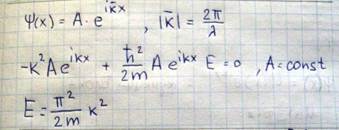 ψ(x) = A · e^{i k̄ x} , |k̄| = 2π/λ
-k² A e^{ikx} + ħ²/2m A e^{ikx} E = 0 , A = const
E = π²/2m k²